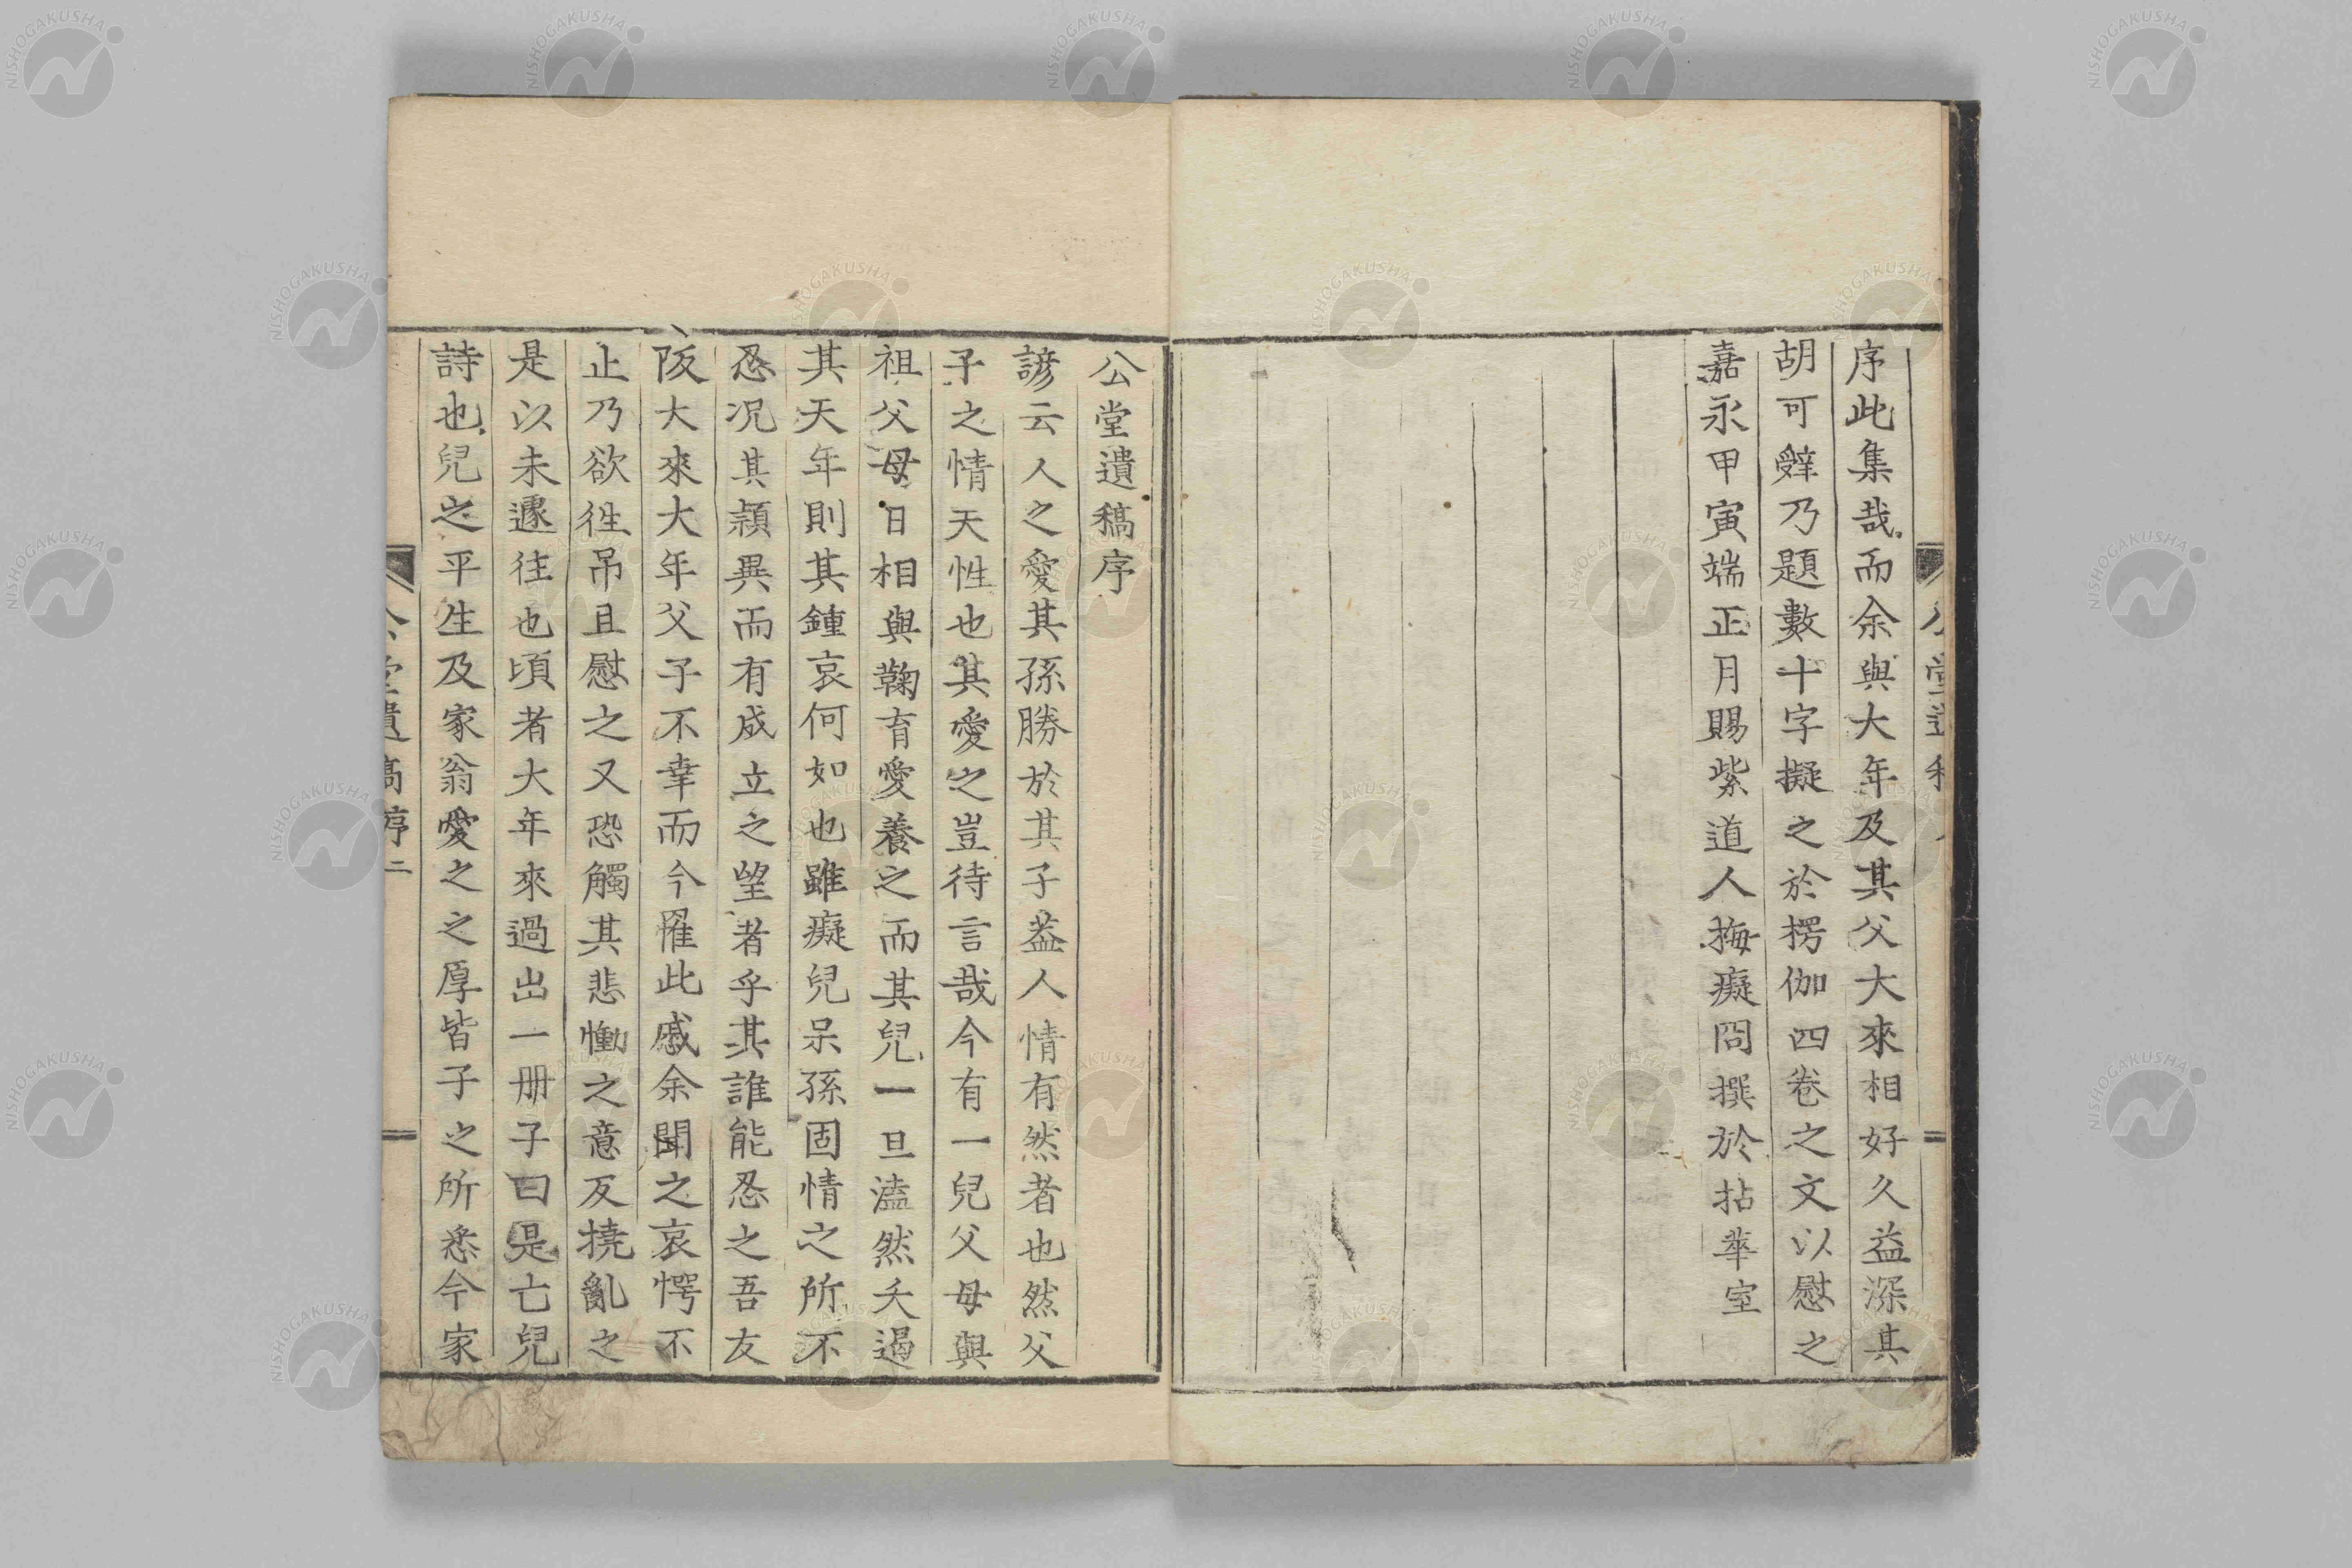 序此集哉而余與大年及其父大來相好久益深其
胡可辤乃題數十字擬之於楞伽四卷之文以慰之
嘉永甲寅端正月賜紫道人梅癡冏撰於拈華室
公堂遺稿序
諺云人之愛其孫勝於其子葢人情有然者也然父
子之情天性也其愛之豈待言哉今有一兒父母與
祖父母日相與鞠育愛養之而其兒一旦溘然夭遏
其天年則其鍾哀何如也雖癡兒呆孫固情之所不
忍况其穎異而有成立之望者乎其誰能忍之吾友
阪大來大年父子不幸而今罹此戚余聞之哀愕不
止乃欲徃吊且慰之又恐觸其悲慟之意反撓亂之
是以未遽往也頃者大年來過出一册子曰是亡兒
詩也兒之平生及家翁愛之之厚皆子之所悉今家
公堂遺稿序二
NISHOGAKUSHA